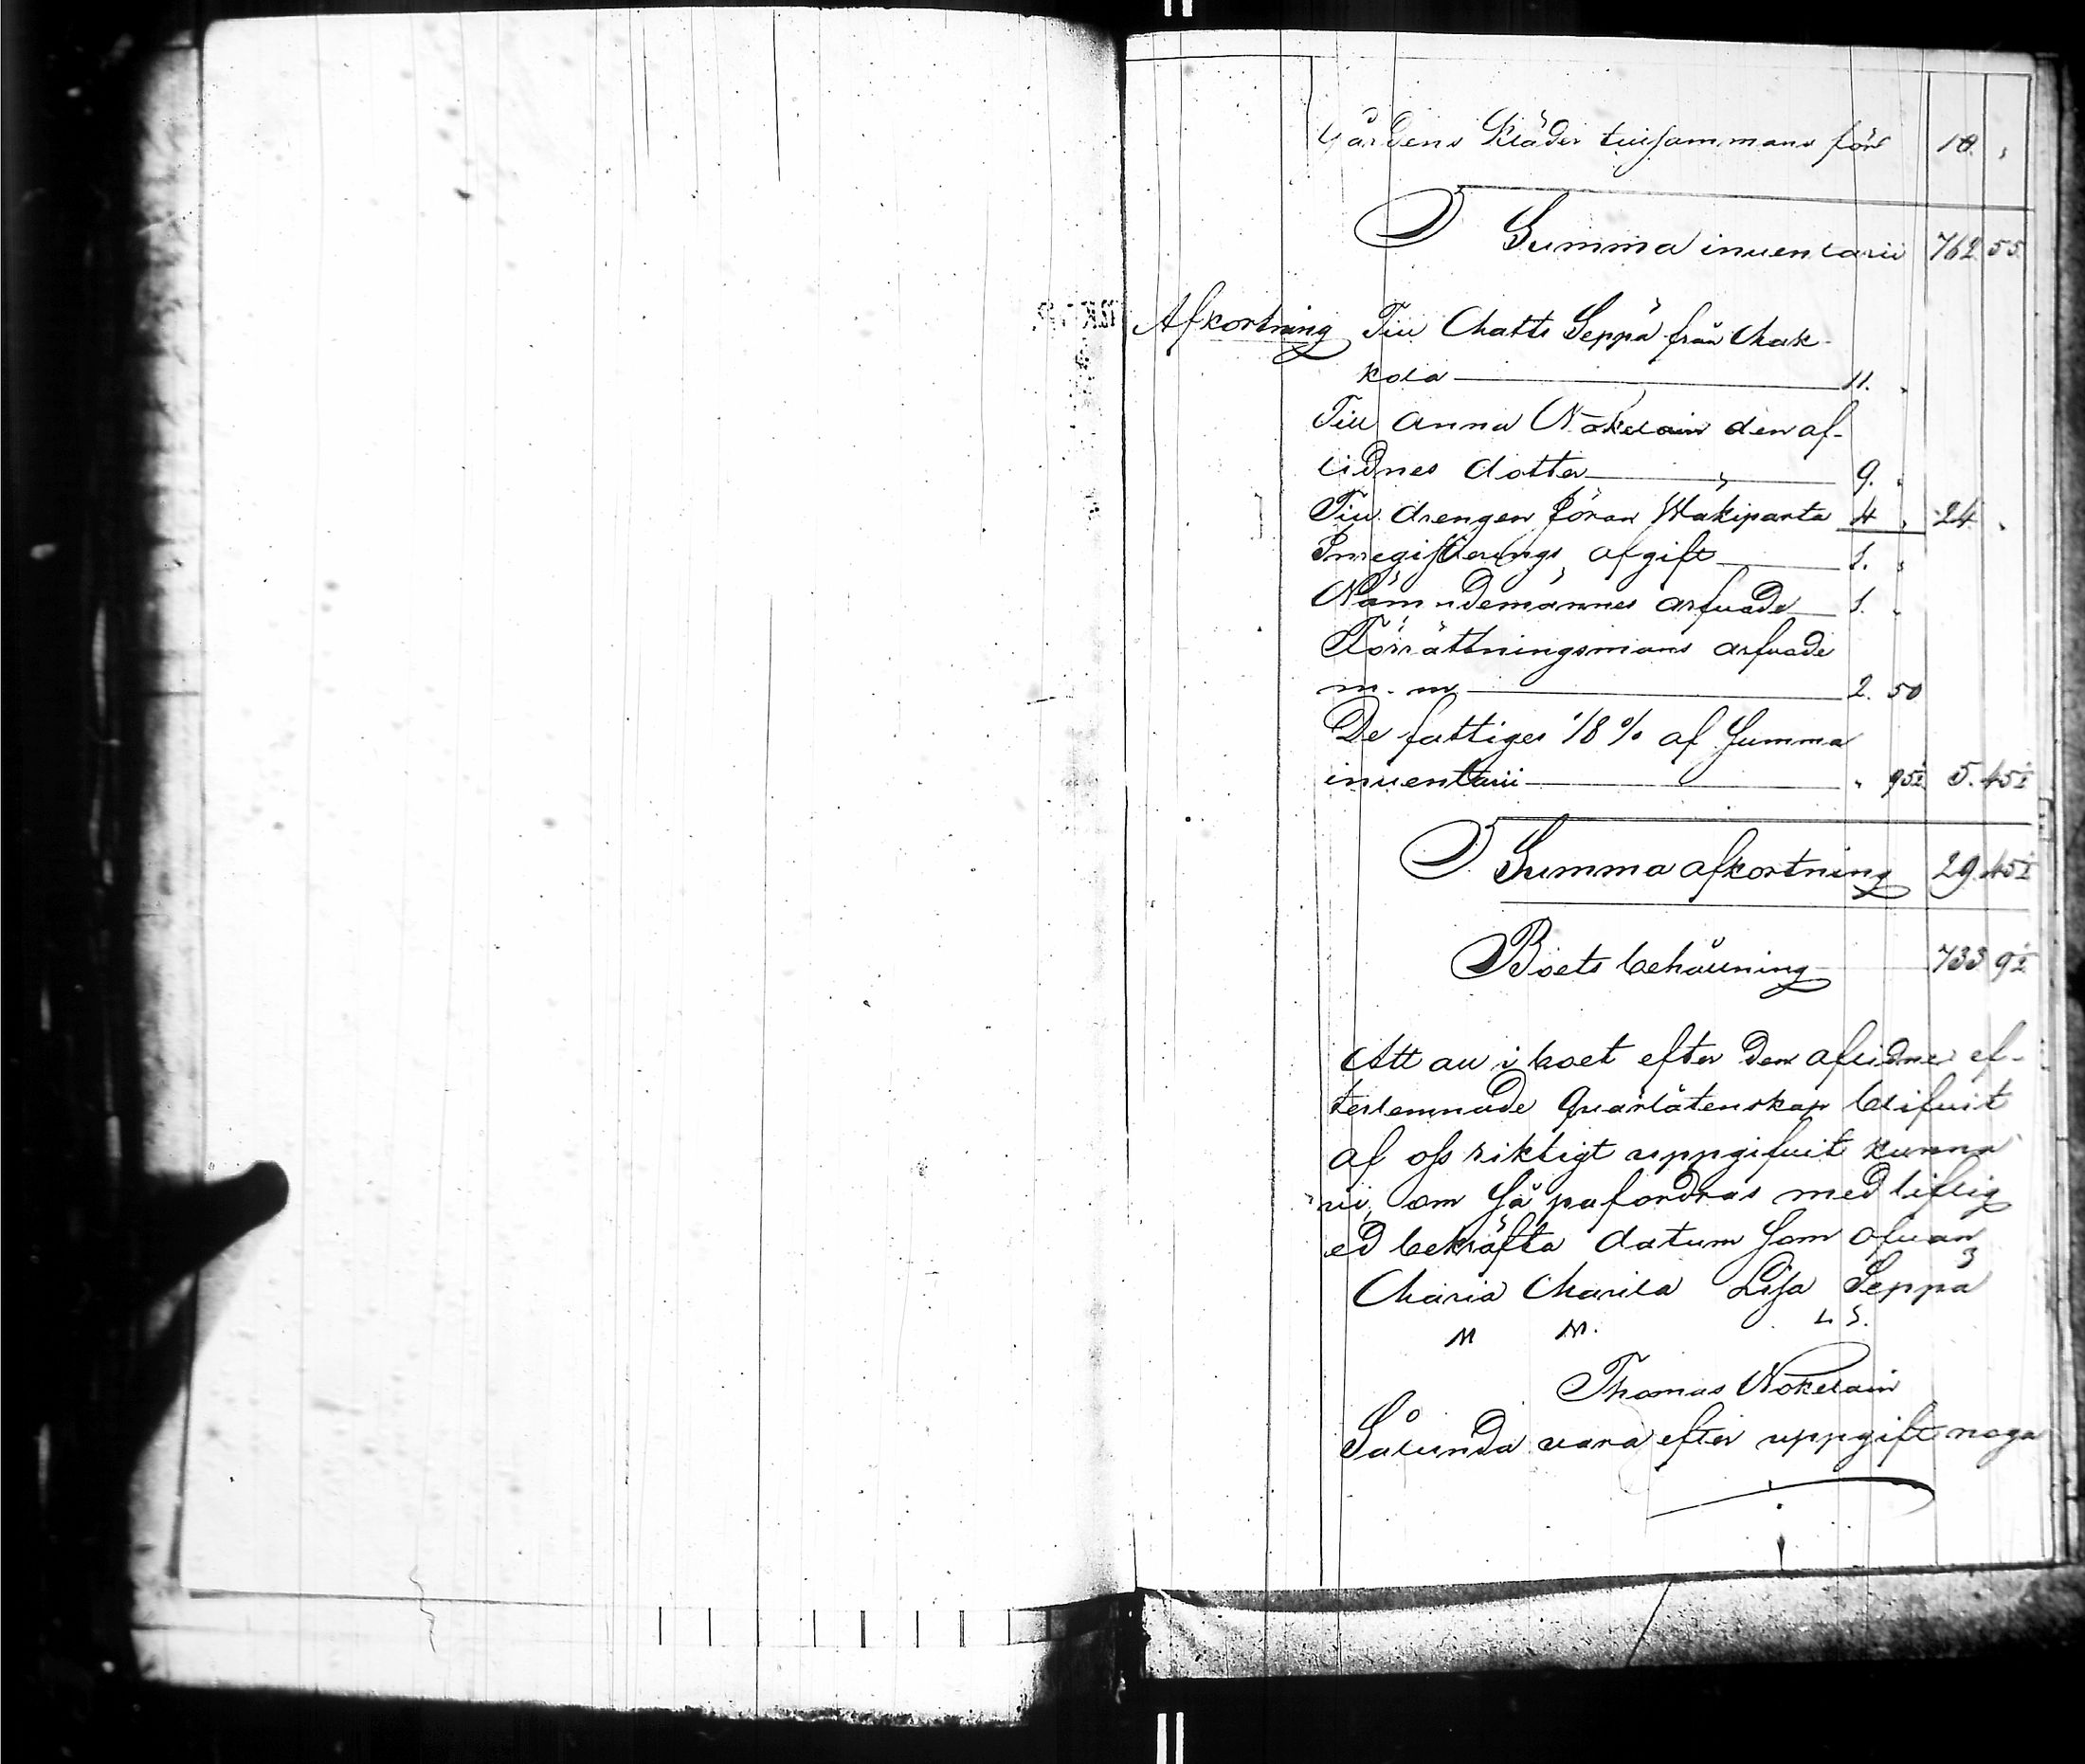 Gårdens Kläder tillsammans för 10 "
Summa inventarii 762 55
Afkortning Till Matts Seppä från Mak-
kola 11. "
Till Anna Nokelain den af-
lidnes dotter 9. "
Till drengen Jöran Wäkiparta 4 " 24 "
Inregistrerings afgift 1. "
Nämndemannes arfvode 1. "
Förrättningsmans arfvode
m. m. 2. 50
De fattiges 1/8 % af Summa
inventarii " 95½ 5. 45½
Summa afkortning 29. 45½
Boets behållning 733 9½
Att all i boet efter den aflidne ef-
terlemnade qvarlåtenskap blifvit
af oss riktigt uppgifvit kunna
vi, om så påfordras med liflig
ed bekräfta datum som ofvan
Maria Marila Lisa Seppä
M M. L S.
Thomas Nokelain
Sålunda vara efter uppgift noga